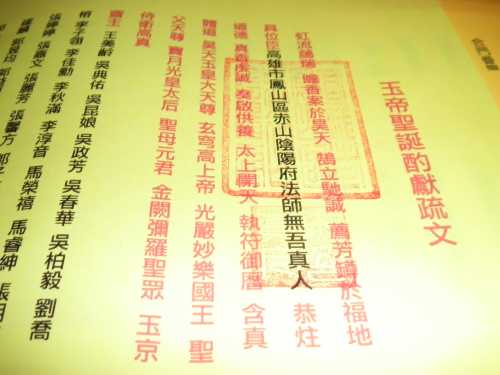 玉帝聖誕酌獻疏文
虹流 瑞 瞻香案於昊天 鵠立馳誠 薦芳 於福地
具位臣高雄市鳳山區赤山陰陽府法師無吾真人 恭炷
道德真香虔誠 奏啟供養 太上開天 執符御曆 含真
體道 昊天玉皇大天尊 玄穹高上帝 光嚴妙樂國王 聖
父天尊 寶月光皇太后 聖母元君 金闕彌羅聖眾 玉京
侍衛高真
齋主 王美齡 吳典佑 吳昆娘 吳政芳 吳春華 吳柏毅 劉喬
榕 李子翎 李佳勳 李秋滿 李淳音 馬榮禧 馬睿紳 張明
張婷婷 張嘉文 張麗芳 張馨方 郭子
麟 郭毅均